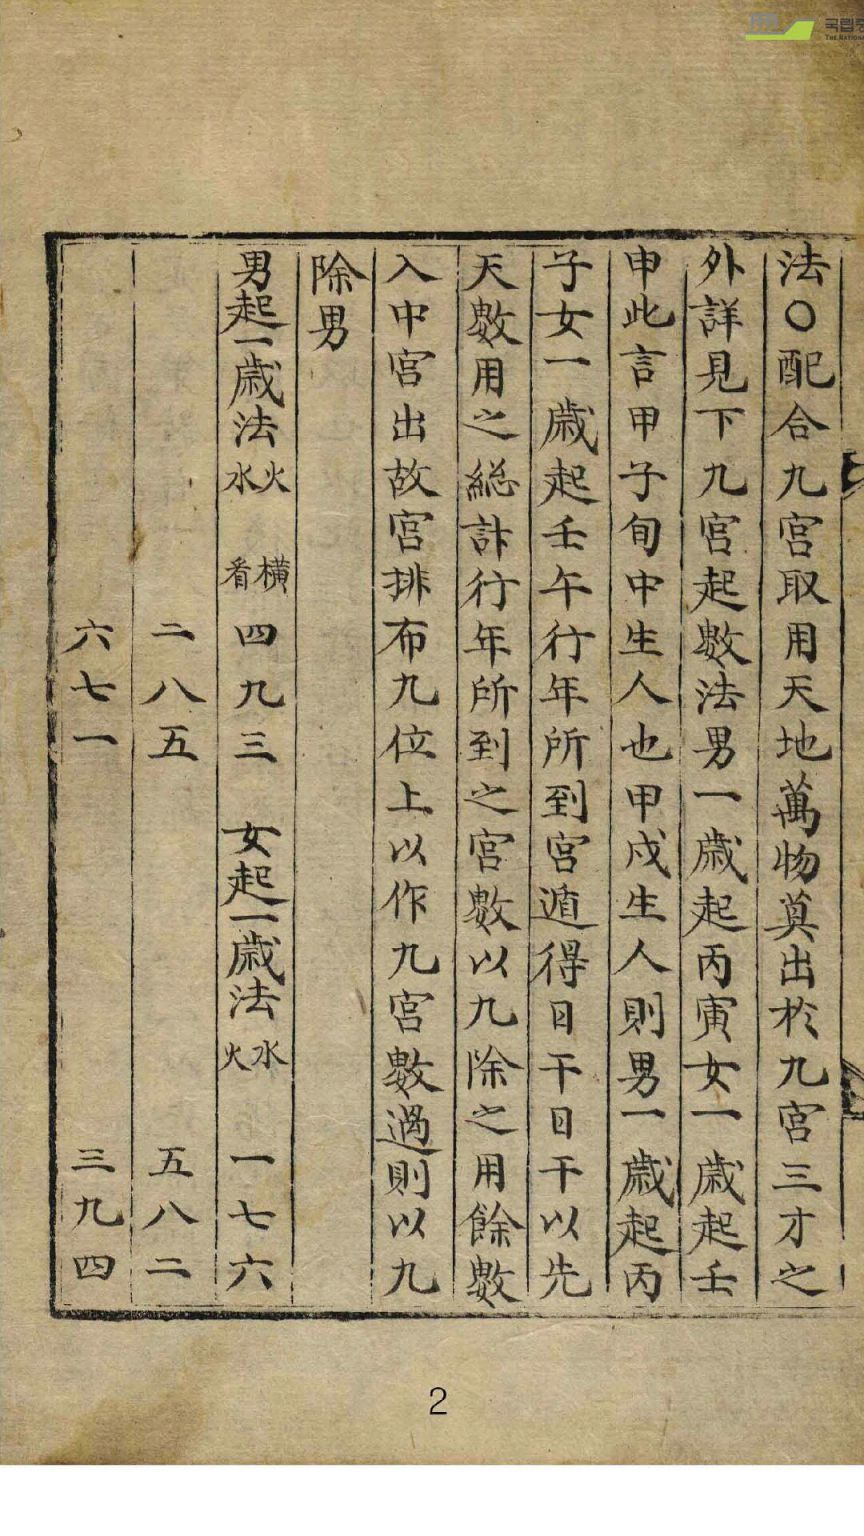 法〇配合九宮取用天地萬物奠出於九宮三才之
外詳見下九宮起數法男一歲起丙寅女一歲起壬
申此言甲子旬中生人也甲戌生人則男一歲起丙
子女一歲起壬午行年所到宮遁得日干日干以先
天數用之総計行年所到之宮數以九除之用餘數
入中宮出故宮排布九位上以作九宮數過則以九
除男
男起一歲法 火水 橫看 四九三 女起一歲法 水火 一七六
二八五 五八二
六七一 三九四
2
국립중
THE NATIONA